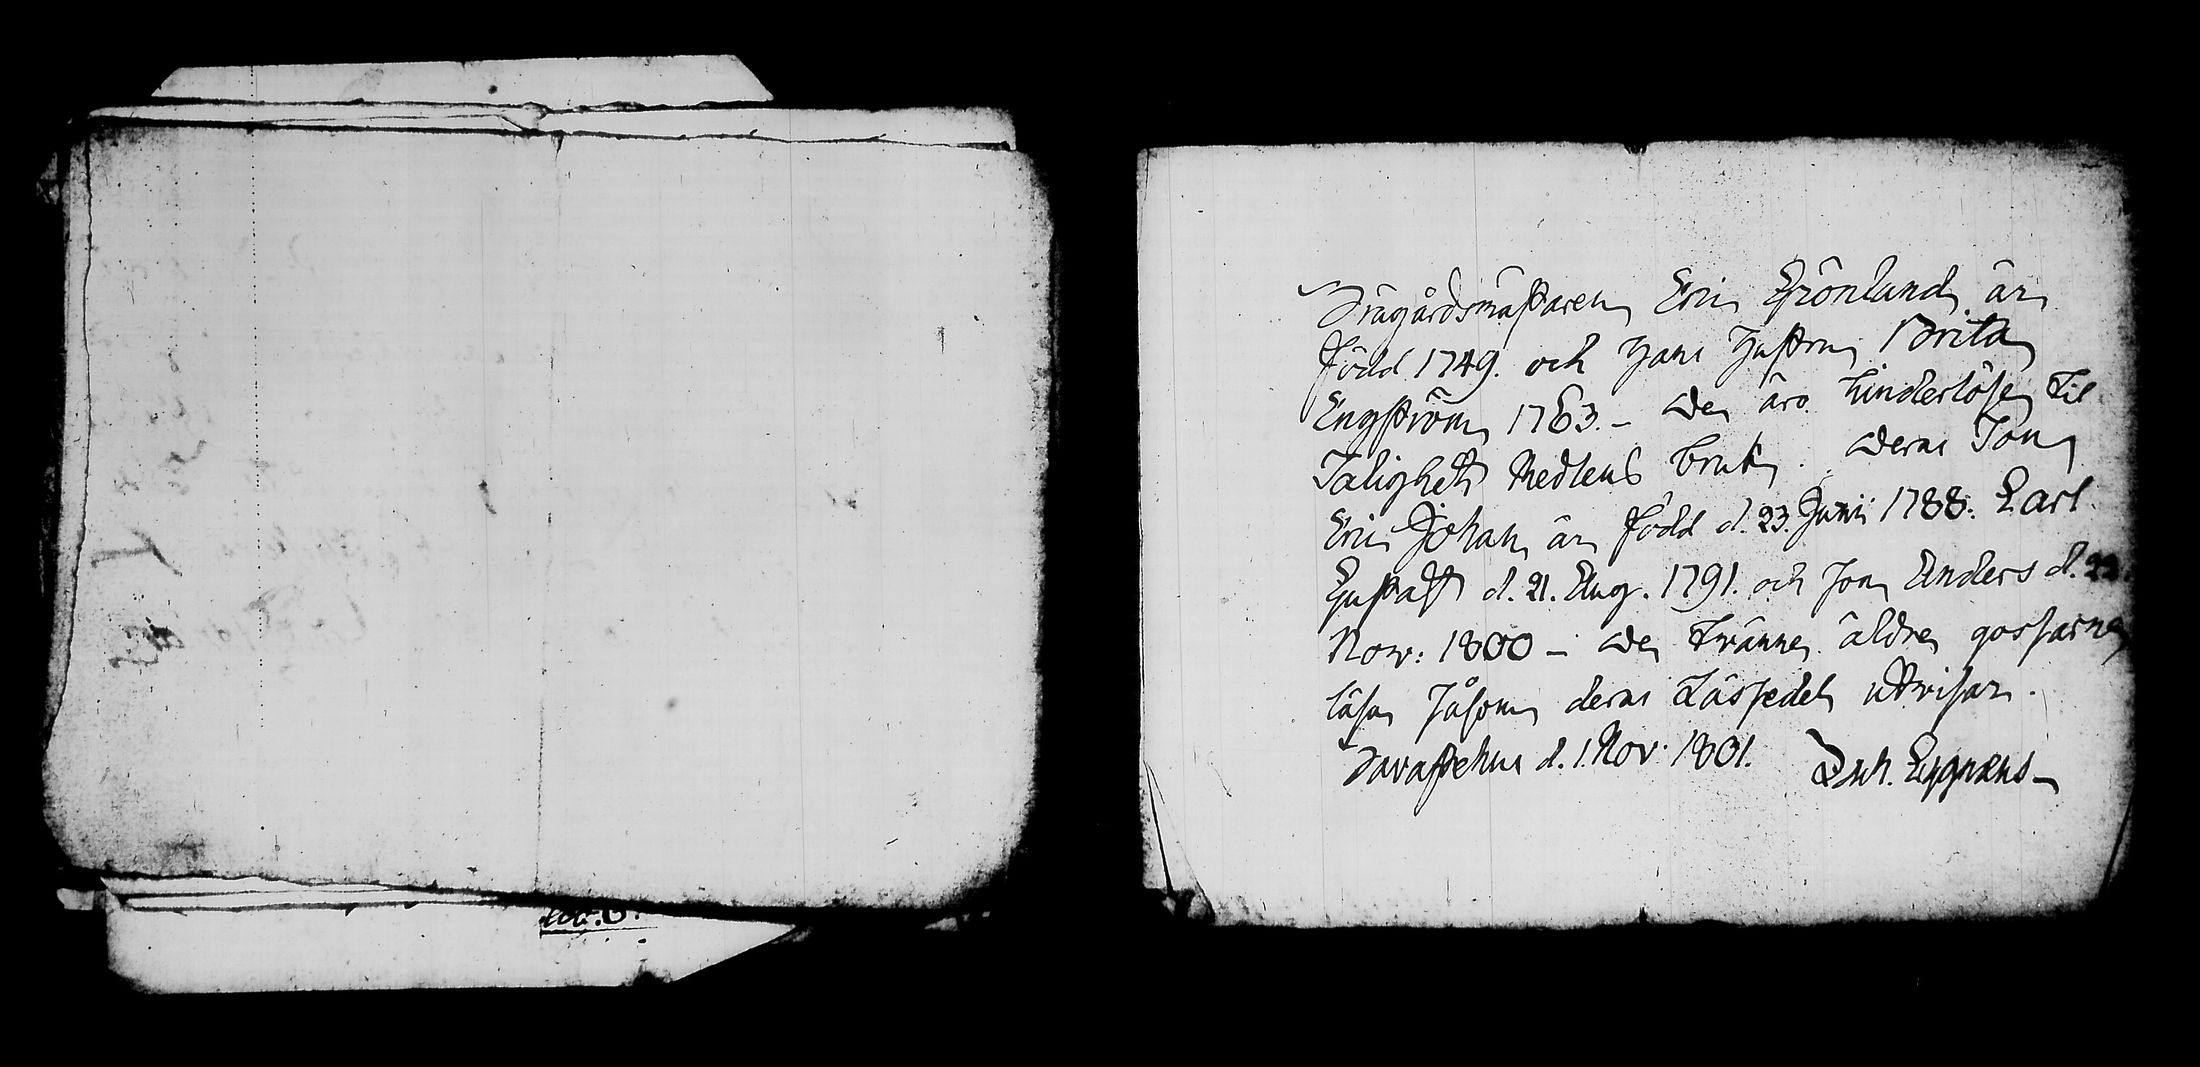 Trägårdsmästaren Eric Grönlund är
född 1749. och Hans Hustru Brita
Engström 1763. – De äro hinderlöse til
Salighets Medlens bruk. Deras Son
Eric Johan är född d. 23. Junii 1788. Carl
Gustaff d. 21. Aug. 1791. och Jon Anders d. 22.
Nov: 1800 – De tvänne äldre gossarne
läsa såsom deras Läsledel utvisar.
Tavastehus d. 1. Nov. 1801. Zach. Cygnæus